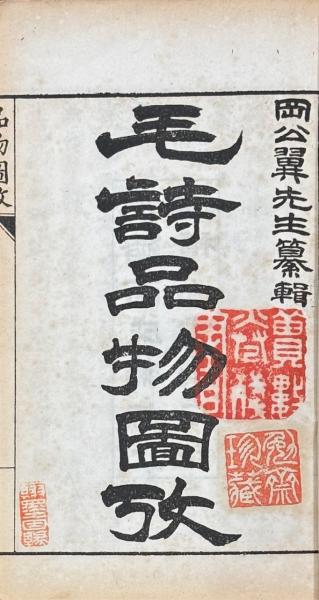 岡公翼先生纂輯
毛詩品物圖攷
品物圖攷
勉齋珍藏